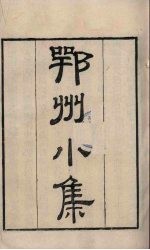 鄂州小集